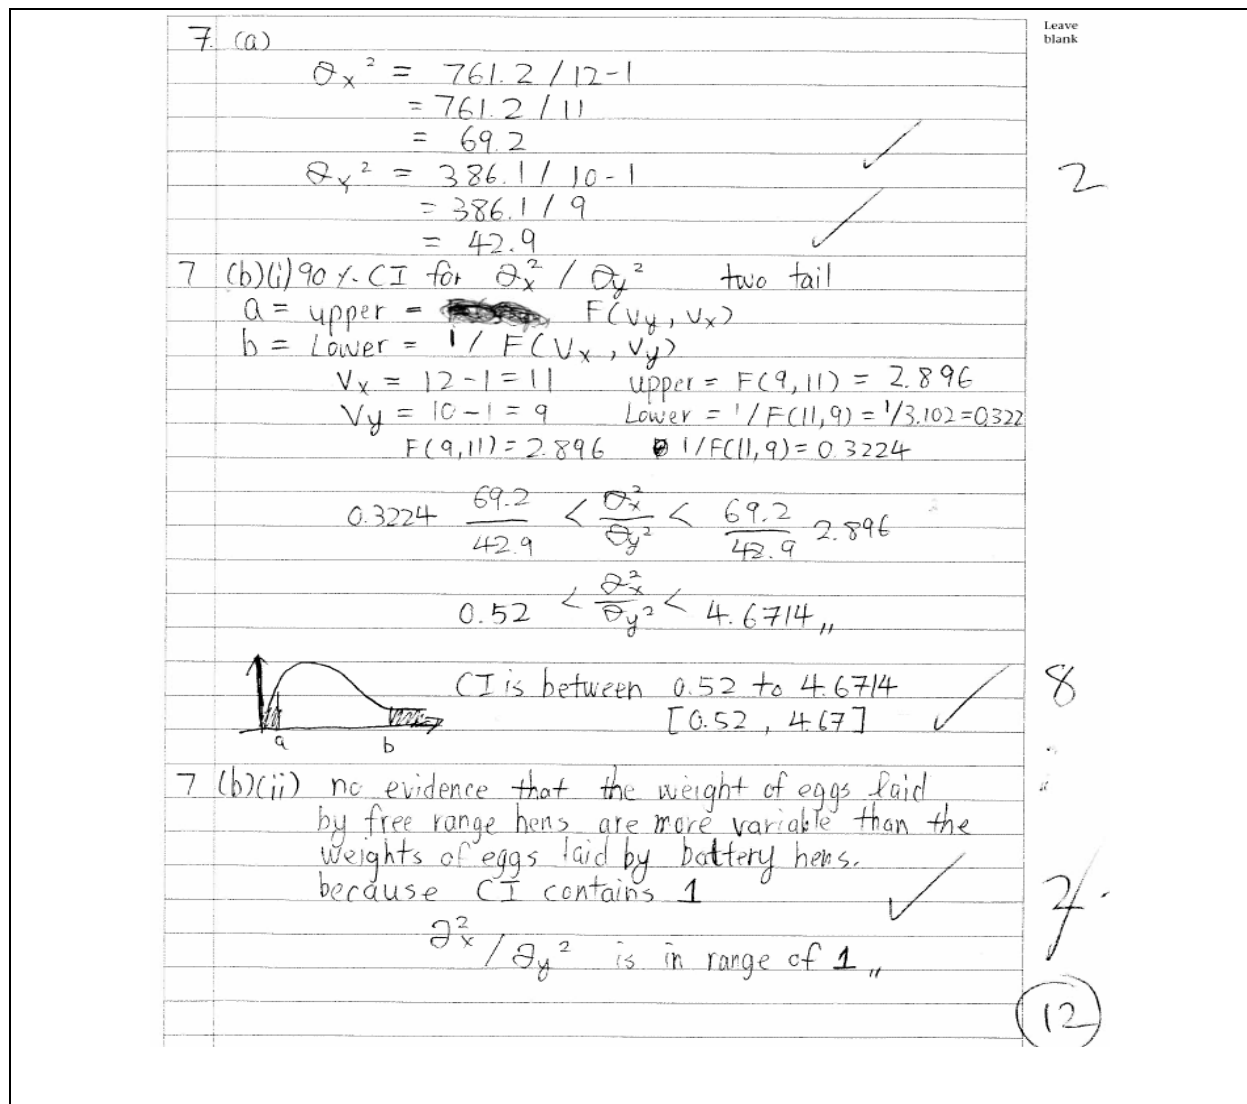 Leave
blank
7. (a)
∂x² = 761.2 / 12-1
= 761.2 / 11
= 69.2
∂y² = 386.1 / 10-1
2
= 386.1 / 9
= 42.9
7 (b)(i) 90%. CI for ∂x² / ∂y² two tail
a = upper = F(Vy, Vx)
b = Lower = 1/ F(Vx, Vy)
Vx = 12-1 = 11 upper = F(9,11) = 2.896
Vy = 10-1 = 9 Lower = 1/F(11,9) = 1/3.102=0.322
F(9,11) = 2.896 1/F(11,9) = 0.3224
0.3224 69.2/42.9 < ∂x²/∂y² < 69.2/42.9 2.896
0.52 < ∂x²/∂y² < 4.6714,,
CI is between 0.52 to 4.6714
8
[0.52, 4.67]
a b
7 (b)(ii) no evidence that the weight of eggs laid
by free range hens are more variable than the
weights of eggs laid by battery hens.
because CI contains 1
2
∂x² / ∂y² is in range of 1,,
12